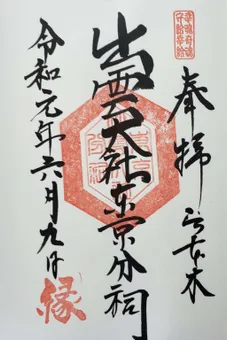 奉拝 六本木
出雲大社東京分祠
令和元年六月九日
縁